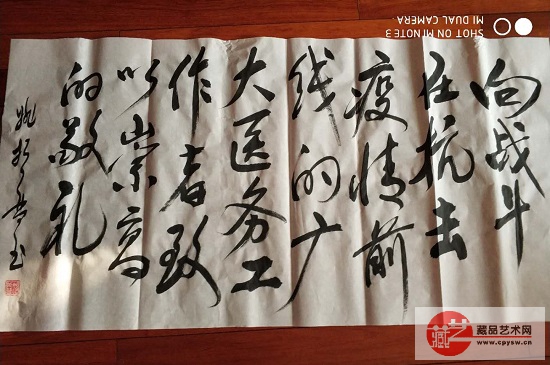 SHOT ON MI NOTE 3
MI DUAL CAMERA
向战斗
在抗击
疫情前
线的广
大医务工
作者致
以崇高
的敬礼
藏品艺术网
www.cpysw.cn